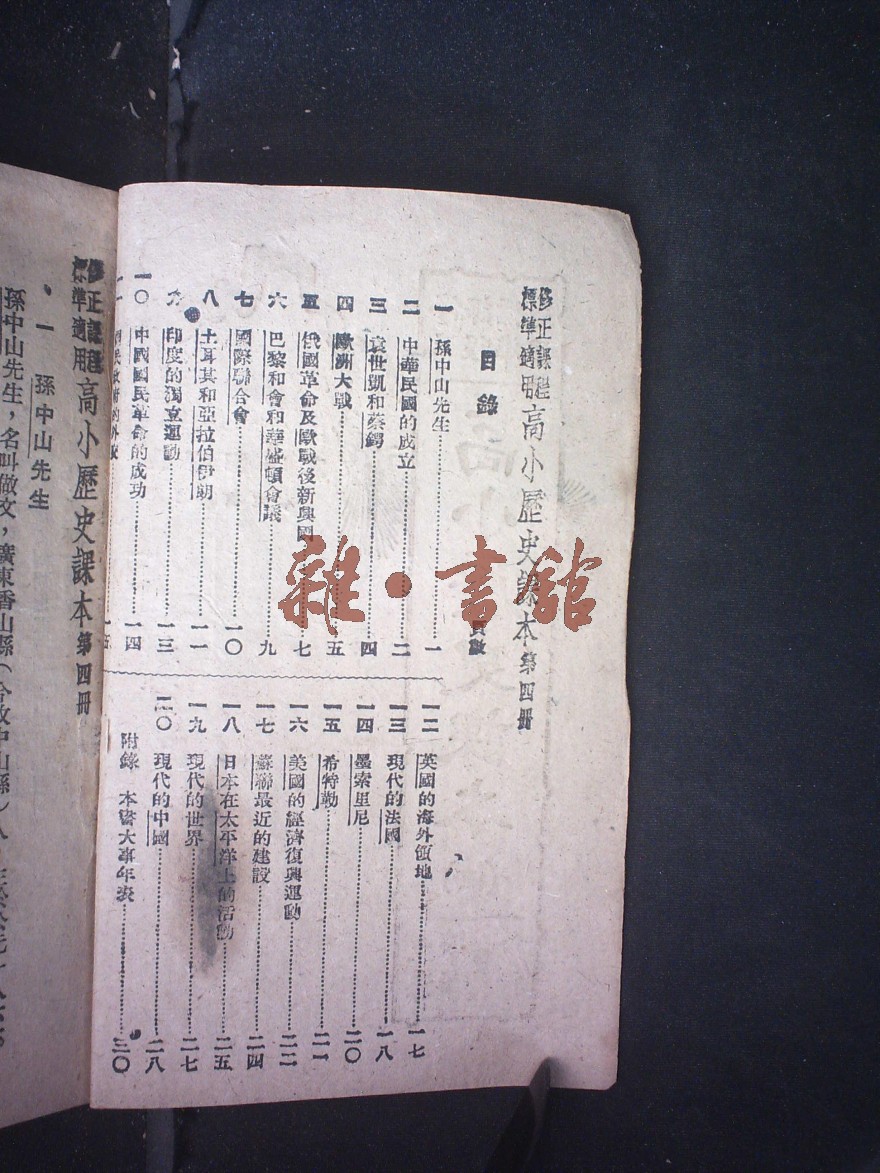 修正課程標準適用 高小歷史課本 第四冊
目錄
頁數
一 孫中山先生 一
二 中華民國的成立 二
三 袁世凱和蔡鍔 四
四 歐洲大戰 五
五 俄國革命及歐戰後新興國 七
六 巴黎和會和華盛頓會議 九
七 國際聯合會 一〇
八 土耳其和亞拉伯伊朗 一一
九 印度的獨立運動 一三
一〇 中國國民革命的成功 一四
一一 一五
一二 英國的海外領地 一七
一三 現代的法國 一八
一四 墨索里尼 二〇
一五 希特勒 二一
一六 美國的經濟復興運動 二二
一七 蘇聯最近的建設 二四
一八 日本在太平洋上的活動 二五
一九 現代的世界 二七
二〇 現代的中國 二八
附錄 本書大事年表 三〇
修正課程標準適用 高小歷史課本 第四冊
一 孫中山先生
孫中山先生，名叫做文，廣東香山縣（今改中山縣）人
雜·書館